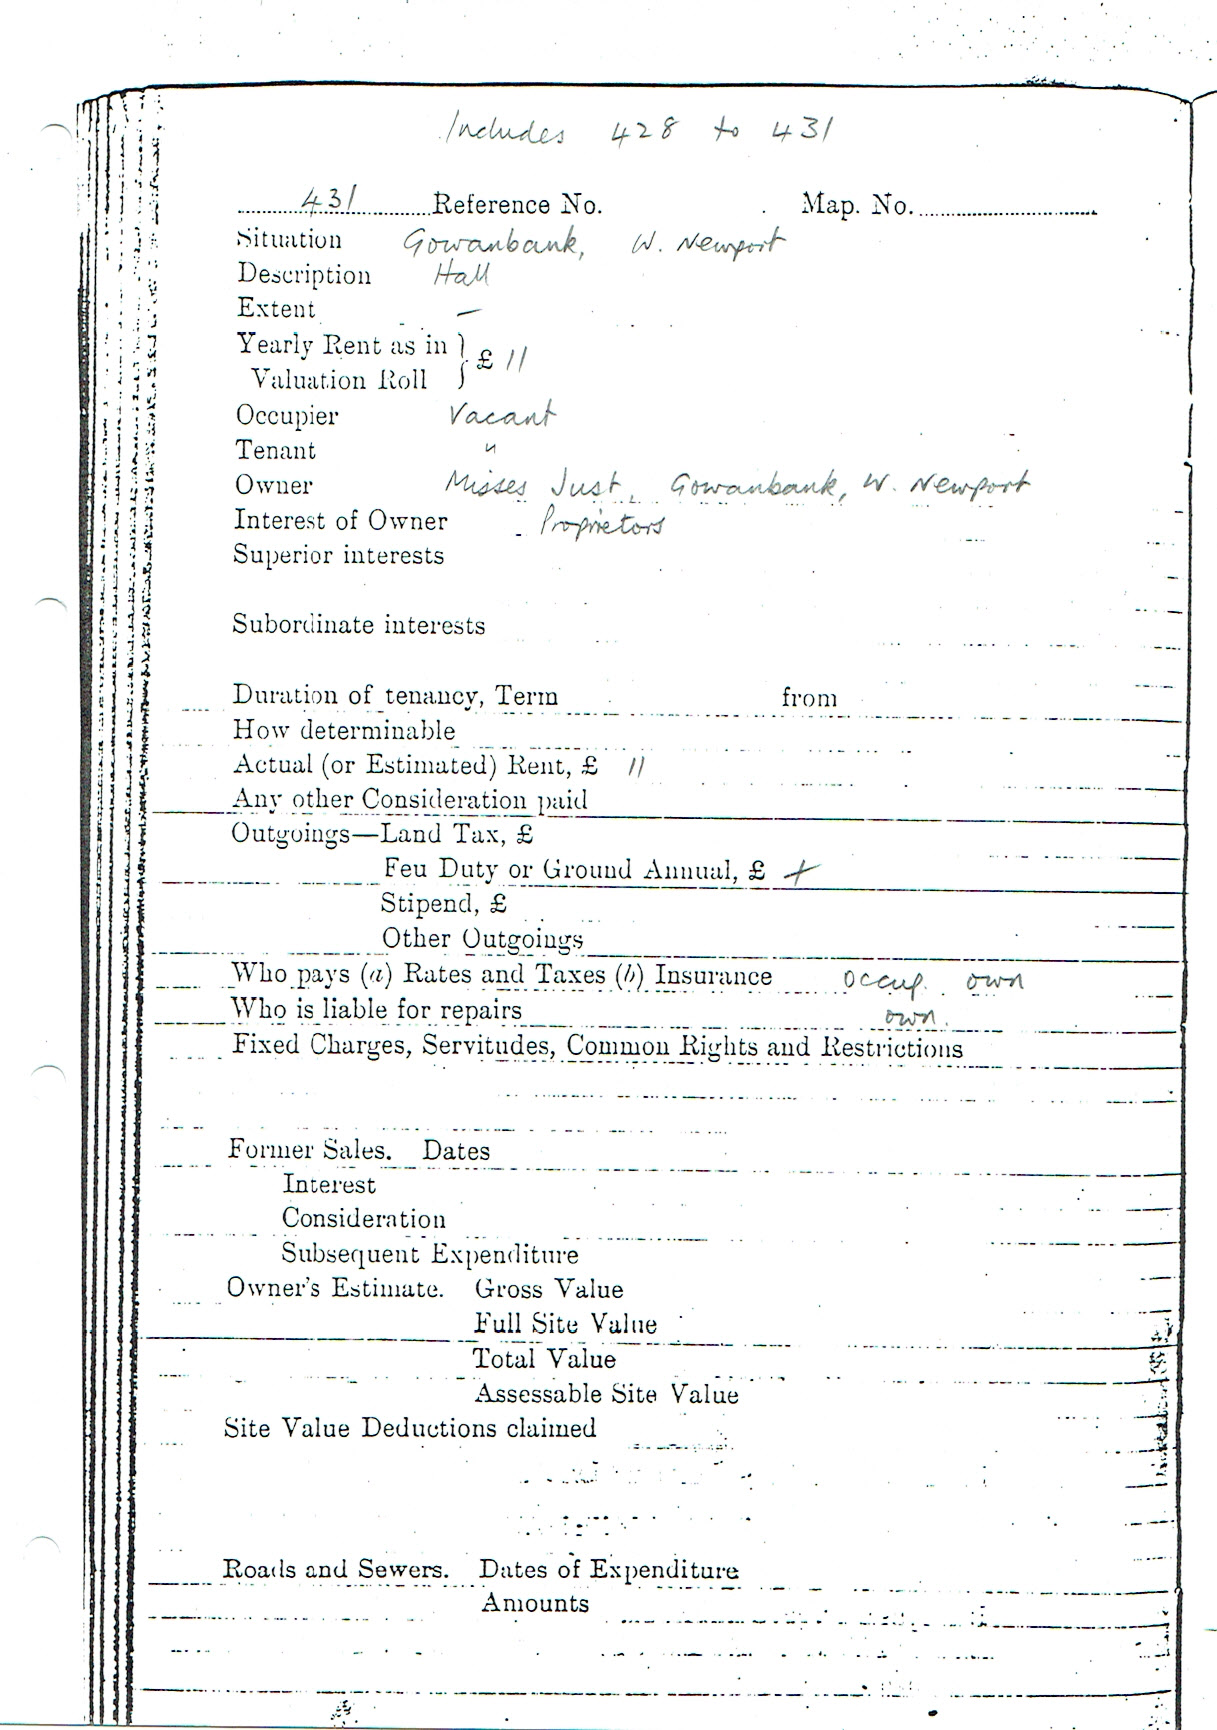 Includes 428 to 431
431 Reference No. Map. No.
Situation Gowanbank, W. Newport
Description Hall
Extent —
Yearly Rent as in
Valuation Roll } £ 11
Occupier Vacant
Tenant "
Owner Misses Just, Gowanbank, W. Newport
Interest of Owner Proprietors
Superior interests
Subordinate interests
Duration of tenancy, Term from
How determinable
Actual (or Estimated) Rent, £ 11
Any other Consideration paid
Outgoings—Land Tax, £
Feu Duty or Ground Annual, £ +
Stipend, £
Other Outgoings
Who pays (a) Rates and Taxes (b) Insurance occup. own
Who is liable for repairs own.
Fixed Charges, Servitudes, Common Rights and Restrictions
Former Sales. Dates
Interest
Consideration
Subsequent Expenditure
Owner's Estimate. Gross Value
Full Site Value
Total Value
Assessable Site Value
Site Value Deductions claimed
Roads and Sewers. Dates of Expenditure
Amounts